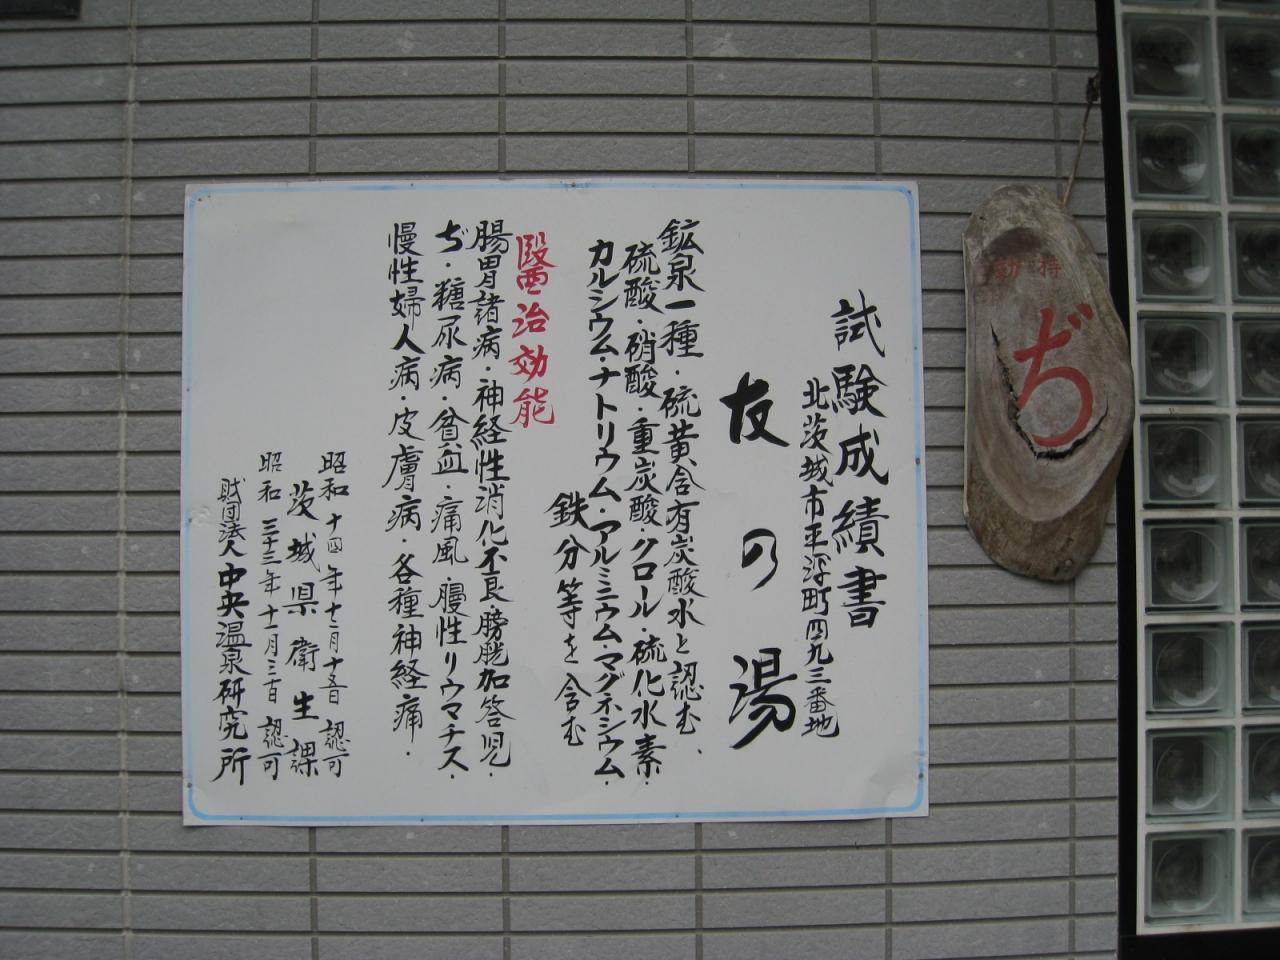 特効
ぢ
試験成績書
北茨城市平潟町四九三番地
友の湯
鉱泉一種・硫黄含有炭酸水と認む、
硫酸・硝酸・重炭酸・クロール・硫化水素・
カルシウム・ナトリウム・アルミニウム・マグネシウム・
鉄分等を含む
醫治効能
腸胃諸病・神経性消化不良・膀胱加答児・
ぢ・糖尿病・貧血・痛風・慢性リウマチス・
慢性婦人病・皮膚病・各種神経痛・
昭和十四年十二月十五日認可
茨城県衛生課
昭和三十三年十一月三日認可
財団法人中央温泉研究所